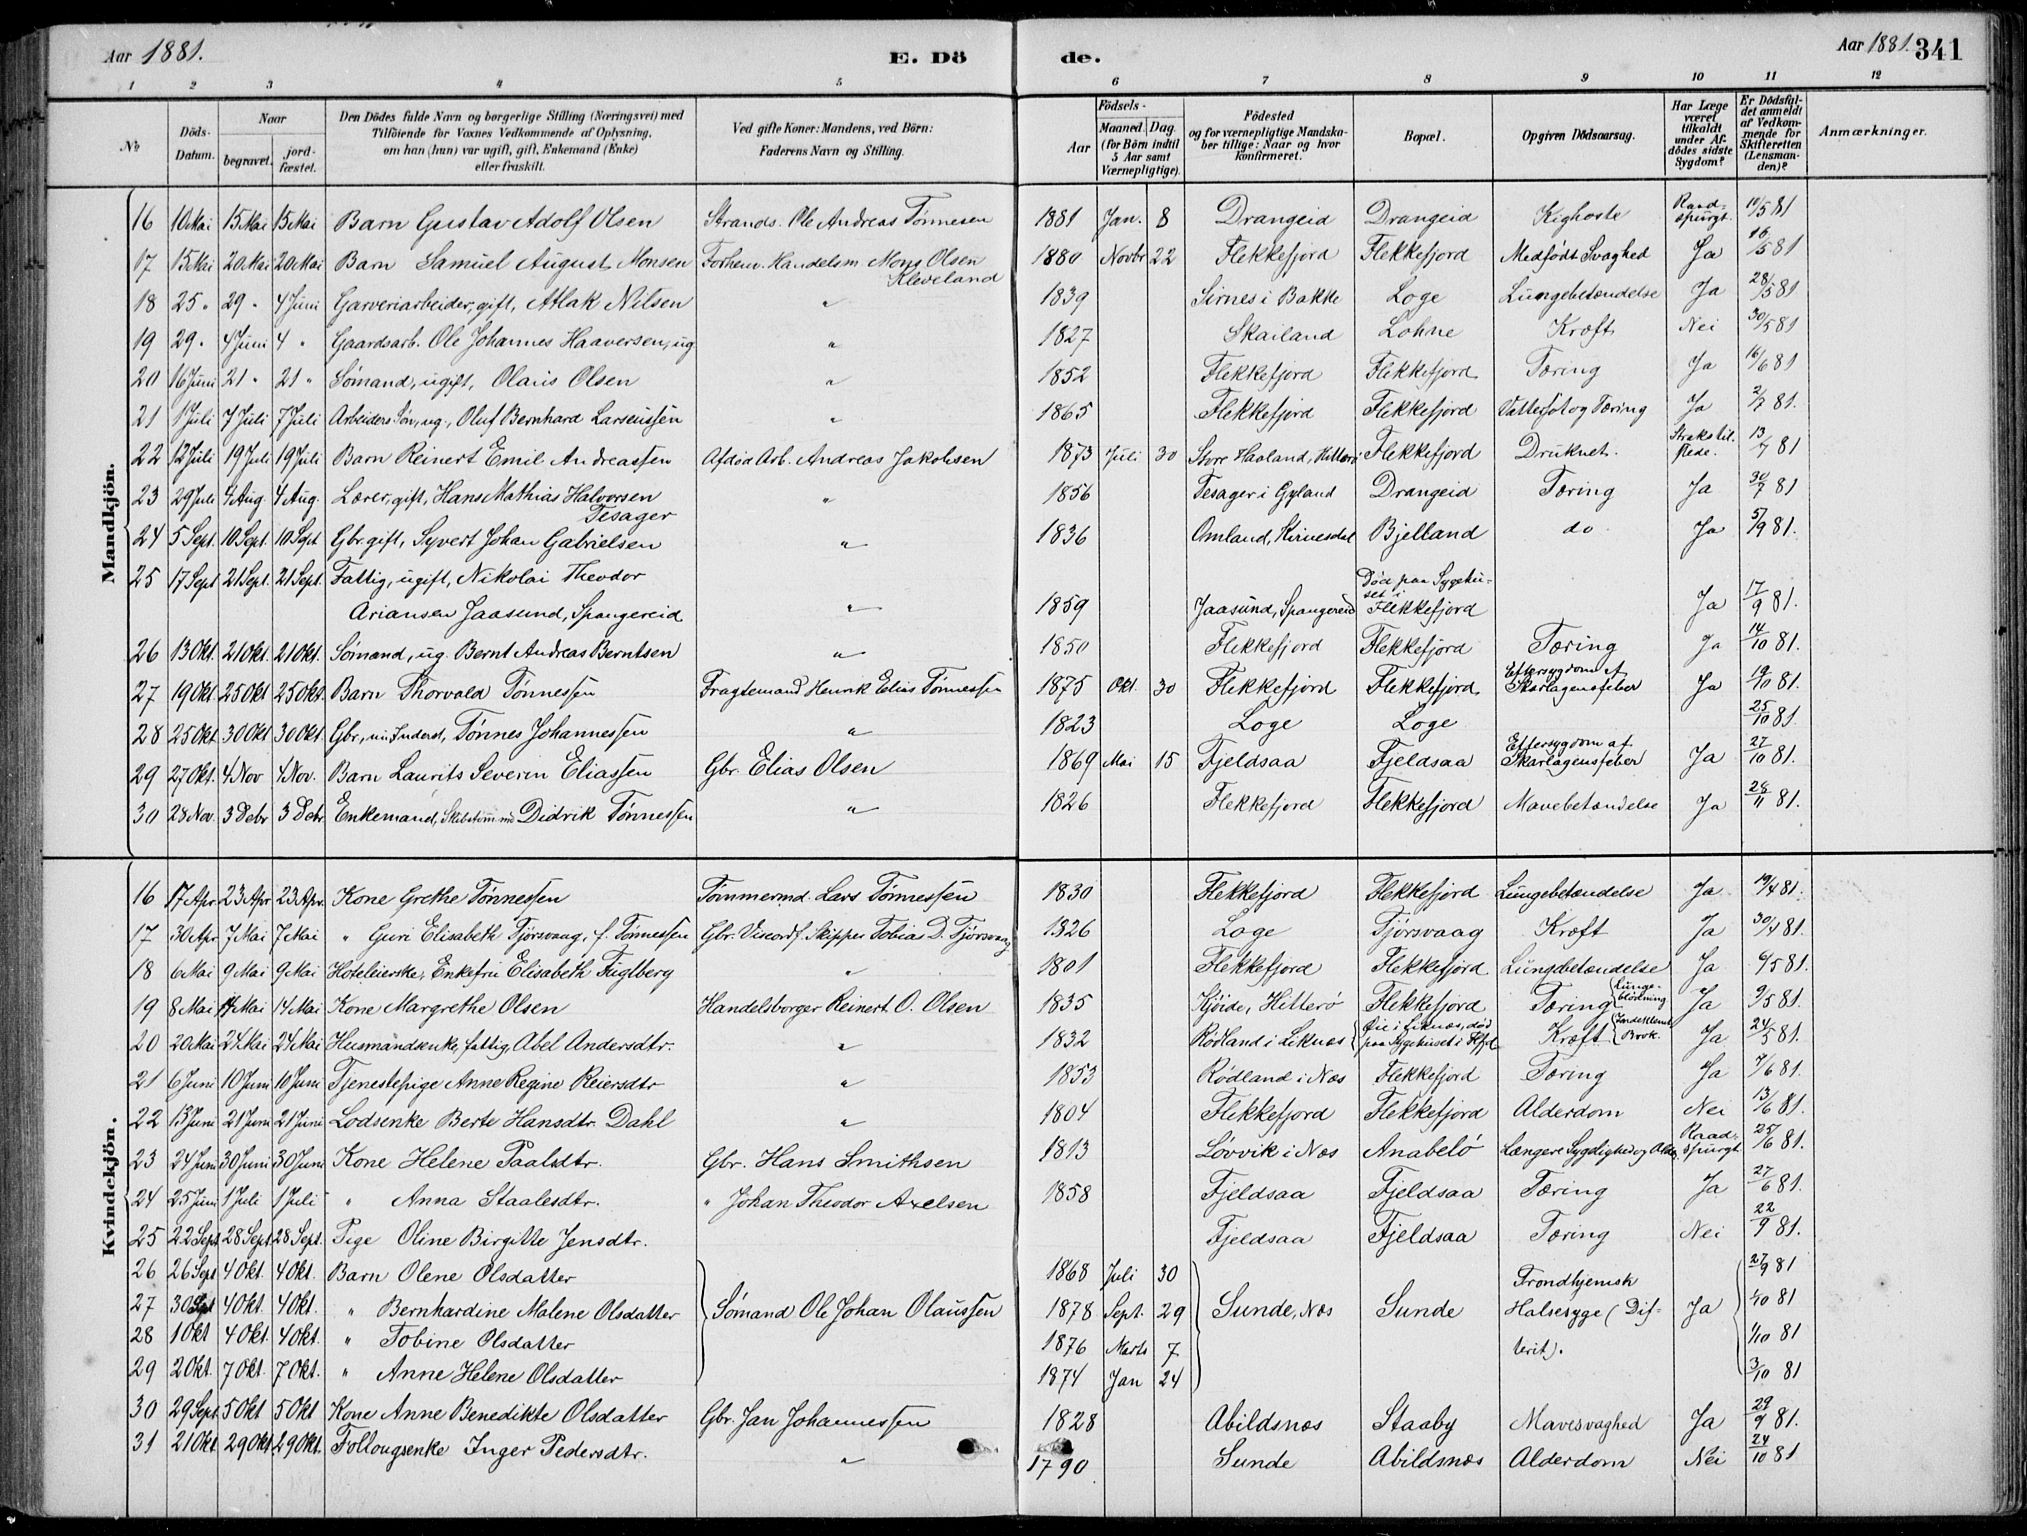 Aar 1881. E. Dö de. Aar 1881. 341
1 2 3 4 5 6 7 8 9 10 11 12
№ Döds-Datum. Naar begravet. jordfæstet. Den Dödes fulde Navn og borgerlige Stilling (Næringsvei) med Tilföiende for Voxnes Vedkommende af Oplysning, om han (hun) var ugift, gift, Enkemand (Enke) eller fraskilt. Ved gifte Koner: Mandens, ved Börn: Faderens Navn og Stilling. Födsels- Aar Maaned. Dag. (for Börn indtil 5 Aar samt Værnepligtige). Födested og for værnepligtige Mandskaber tillige: Naar og hvor konfirmeret. Bopæl. Opgiven Dödsaarsag. Har Læge været tilkaldt under Afdödes sidste Sygdom? Er Dödsfaldet anmeldt af Vedkommende for Skifteretten (Lensmanden)? Anmærkninger.
Mandkjön.
16 10 Mai 15 Mai 15 Mai Barn Gustav Adolf Olsen Strands. Ole Andreas Tönnesen 1881 Jan. 8 Drangeid Drangeid Kighoste Raadspurgt. 10/5 81
17 15 Mai 20 Mai 20 Mai Barn Samuel August Monsen Forhenv. Handelsm. Mons Olsen Kleveland 1880 Novbr 22 Flekkefjord Flekkefjord Medfödt Svaghed Ja 16/5 81
18 25 " 29 " 4 Juni Garveriarbeider, gift, Atlak Nilsen " 1839 Sirnes i Bakke Loge Lungebetændelse Ja 28/5 81
19 29 " 4 Juni 4 " Gaardsarb. Ole Johannes Haaversen, ug. " 1827 Skailand Lohne Kræft Nei 30/5 81
20 16 Juni 21 " 21 " Sømand, ugift, Olaus Olsen " 1852 Flekkefjord Flekkefjord Tæring Ja 16/6 81
21 1 Juli 7 Juli 7 Juli Arbeiders Søn, ug., Oluf Bernhard Larsen " 1865 Flekkefjord Flekkefjord Vattersot og Tæring Ja 2/7 81.
22 12 Juli 19 Juli 19 Juli Barn Reinert Emil Andreassen Afdød Arb. Andreas Jakobsen 1873 Juli 30 Store Haaland, Hitterø Flekkefjord Druknet. Straks tilstede. 13/7 81
23 29 Juli 4 Aug. 4 Aug. Lærer, gift, Hans Mathias Halvorsen Tesager " 1856 Tesager i Gyland Drangeid Tæring Ja 30/7 81
24 5 Sept. 10 Sept. 10 Sept Gbr. gift, Syvert Johan Gabrielsen " 1836 Omland, Kvinesdal Bjelland do Ja 5/9 81.
25 17 Sept 21 Sept. 21 Sept. Fattig, ugift, Nikolai Theodor
Ariansen Jaasund, Spangereid " 1859 Jaasund, Spangereid Død paa Sygehuset i Flekkefjord Ja 17/9 81.
26 13 Okt. 21 Okt. 21 Okt. Sømand, ug. Bernt Andreas Berntsen " 1850 Flekkefjord Flekkefjord Tæring Ja 14/10 81.
27 19 Okt 25 Okt 25 Okt. Barn Thorvald Tönnessen Fragtemand Henrik Elias Tönnessen 1875 Okt. 30 Flekkefjord Flekkefjord Eftersygdom af Skarlagensfeber Ja 19/10 81.
28 25 Okt. 30 Okt 30 Okt. Gbr., Tönnes Johannessen " 1823 Loge Loge 25/10 81.
29 27 Okt. 4 Nov 4 Nov. Barn Laurits Severin Eliassen Gbr. Elias Olsen 1869 Mai 15 Fjeldsaa Fjeldsaa Eftersygdom af Skarlagensfeber Ja 27/10 81.
30 28 Nov. 3 Debr 3 Debr Enkemand, Skibstømmd Didrik Tönnessen " 1826 Flekkefjord Flekkefjord Mavebetændelse Ja 28/11 81.
Kvindekjön.
16 17 Apr 23 Apr 23 Apr. Kone Grethe Tönnessen Tömmermd. Lars Tönnessen 1830 Flekkefjord Flekkefjord Lungebetændelse Ja 19/4 81.
17 30 Apr 7 Mai 7 Mai " Guri Elisabeth Tjörsvaag, f. Tönnessen Gbr. Viceordf. Skipper Tobias D. Tjörsvaag 1826 Loge Tjörsvaag Kræft Ja 30/4 81.
18 6 Mai 9 Mai 9 Mai Hoteleierske, Enkefru Elisabeth Fuglberg " 1801 Flekkefjord Flekkefjord Lungebetændelse Ja 6/5 81.
19 8 Mai 14 Mai 14 Mai Kone Margrethe Olsen Handelsborger Reinert O. Olsen 1835 Kjöide, Hitterö Flekkefjord Tæring Lungeblödning Ja 9/5 81.
20 20 Mai 24 Mai 24 Mai Husmandsenke, fattig, Abel Andersdtr. " 1832 Rødland i Liknæs Øie i Liknæs, död paa Sygehuset i Flfjd Kræft Indeklemt Brok. Ja 24/5 81.
21 6 Juni 10 Juni 10 Juni Tjenestepige Anne Regine Reiersdtr " 1853 Rödland i Næs Flekkefjord Tæring Ja 7/6 81.
22 13 Juni 21 Juni 21 Juni Lodsenke Berte Hansdtr. Dahl " 1804 Flekkefjord Flekkefjord Alderdom Nei 13/6 81.
23 24 Juni 30 Juni 30 Juni Kone Helene Paalsdtr. Gbr. Hans Smithsen 1813 Lövvik i Næs Anabelö Længere Sygdighed og Alder. Raadspurgt 25/6 81.
24 25 Juni 1 Juli 1 Juli " Anna Staalesdtr. " Johan Theodor Axelsen 1858 Fjeldsaa Fjeldsaa Tæring Ja 27/6 81.
25 22 Sept 28 Sept 28 Sept. Pige Oline Birgitte Jensdtr. Fjeldsaa Fjeldsaa Tæring Nei 22/9 81.
26 26 Sept 4 Okt. 4 Okt. Barn Olene Olsdatter 1868 Juli 30 Trondhjemsk 27/9 81
27 30 Sept 4 Okt. 4 Okt. " Bernhardine Malene Olsdatter Sømand Ole Johan Olaussen 1878 Sept. 29 Sunde, Næs Sunde Halsesyge (Dif- Ja 1/10 81
28 1 Okt 4 Okt. 4 Okt. " Tobine Olsdatter 1876 Marts 7 terit). 1/10 81
29 2 Okt. 7 Okt. 7 Okt. " Anne Helene Olsdatter 1874 Jan 24 3/10 81
30 29 Sept 5 Okt 5 Okt Kone Anne Benedikte Olsdatter Gbr. Jan Johannessen 1828 Abildsnæs Staaby Mavesvaghed Ja 29/9 81.
31 21 Okt. 29 Okt. 29 Okt. Follougsenke Inger Pedersdtr. " 1790 Sunde Abildsnæs Alderdom Nei 24/10 81